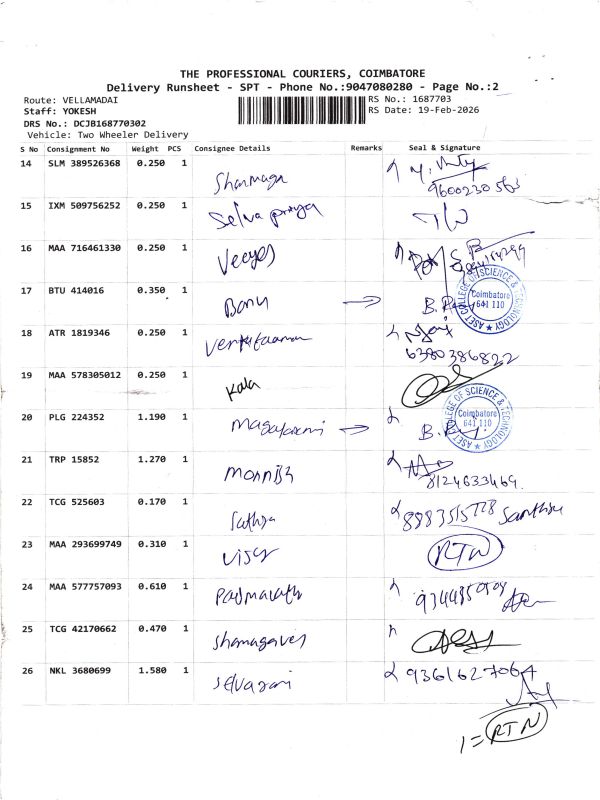 THE PROFESSIONAL COURIERS, COIMBATORE
Delivery Runsheet - SPT - Phone No.:9047080280 - Page No.:2
Route: VELLAMADAI
RS No.: 1687703
Staff: YOKESH
RS Date: 19-Feb-2026
DRS No.: DCJB168770302
Vehicle: Two Wheeler Delivery
S No Consignment No Weight PCS Consignee Details Remarks Seal & Signature
14 SLM 389526368 0.250 1 Shanmaga
15 IXM 509756252 0.250 1 Selva priya
16 MAA 716461330 0.250 1 Veeyes
17 BTU 414016 0.350 1 Banu → B.
COLLEGE OF SCIENCE & TECHNOLOGY
Coimbatore
641 110
18 ATR 1819346 0.250 1
6380386822
19 MAA 578305012 0.250 1 Kala
20 PLG 224352 1.190 1 → B.
COLLEGE OF SCIENCE & TECHNOLOGY
Coimbatore
641 110
21 TRP 15852 1.270 1
8124633469
22 TCG 525603 0.170 1 Sathya
23 MAA 293699749 0.310 1 Vijay RTN
24 MAA 577757093 0.610 1
25 TCG 42170662 0.470 1
26 NKL 3680699 1.580 1 Selvarani 9361627064
1 = RTN